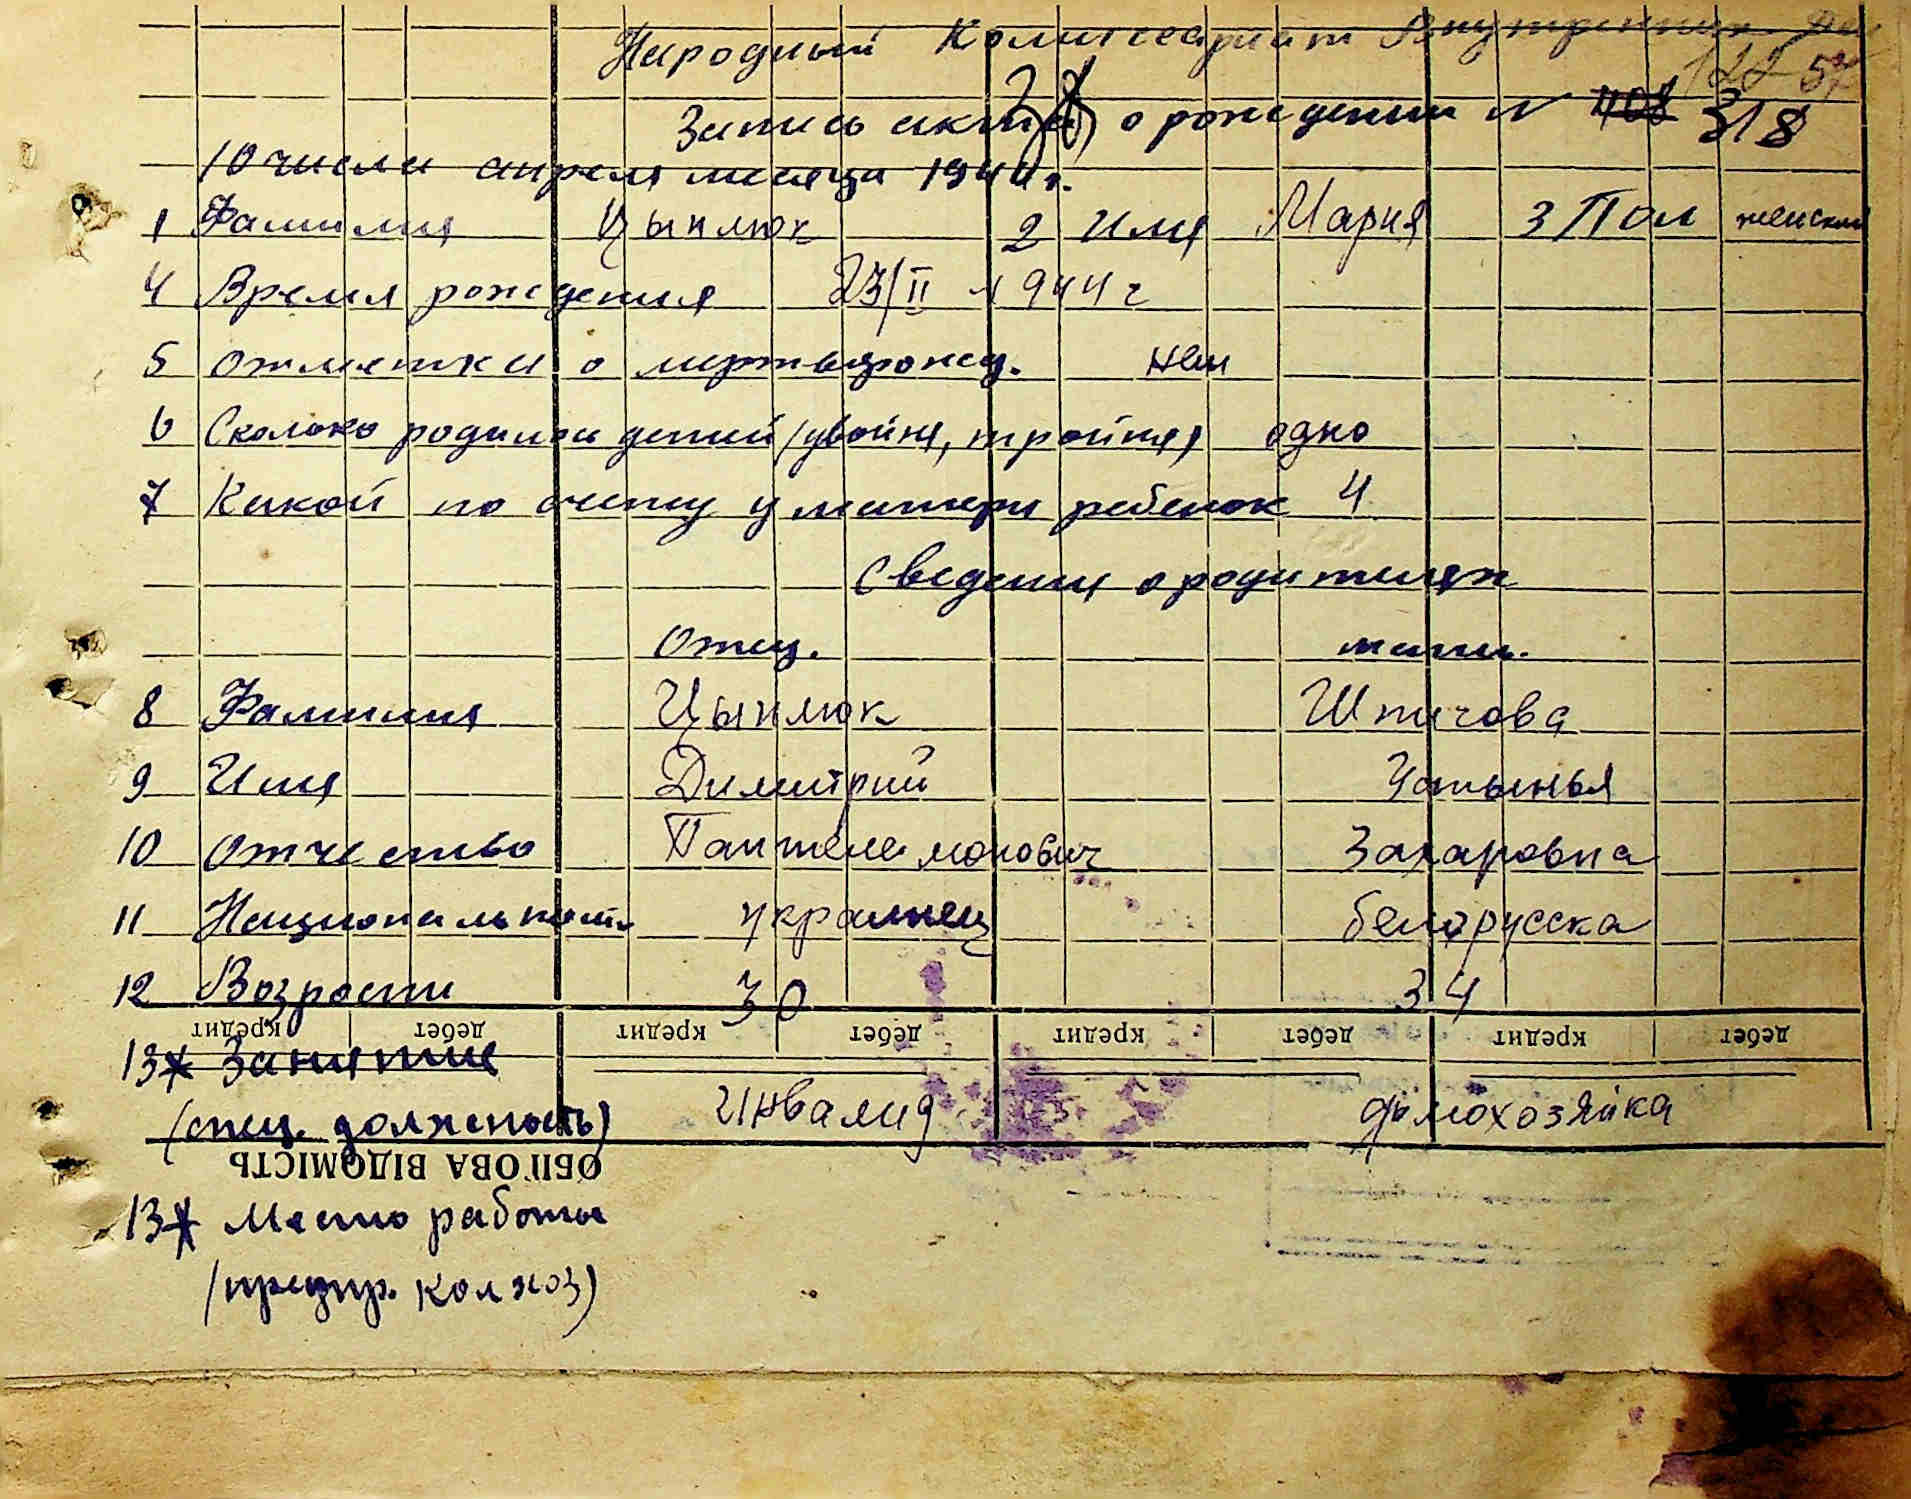 Народный Комиссариат Внутренних Дел
122 57
Запись акта 38 о рождении N 408 318
10 числа апреля месяца 1944 г.
1 Фамилия Цыплюк 2 Имя Мария 3 Пол женский
4 Время рождения 23/II 1944 г
5 Отметка о мертворожд. нет
6 Сколько родилось детей (двойня, тройня) одно
7 Какой по счету у матери ребенок 4
Сведения о родителях
Отец. мать.
8 Фамилия Цыплюк Шпичова
9 Имя Димитрий Устынья
10 Отчество Пантелемонович Захаровна
11 Националность украинец белорусска
12 Возраст 30 34
кредит дебет кредит дебет кредит дебет кредит дебет
13* Занятие
(спец. должность) Инвалид домохозяйка
ОБІГОВА ВІДОМІСТЬ
13* Место работы
(предпр. колхоз)